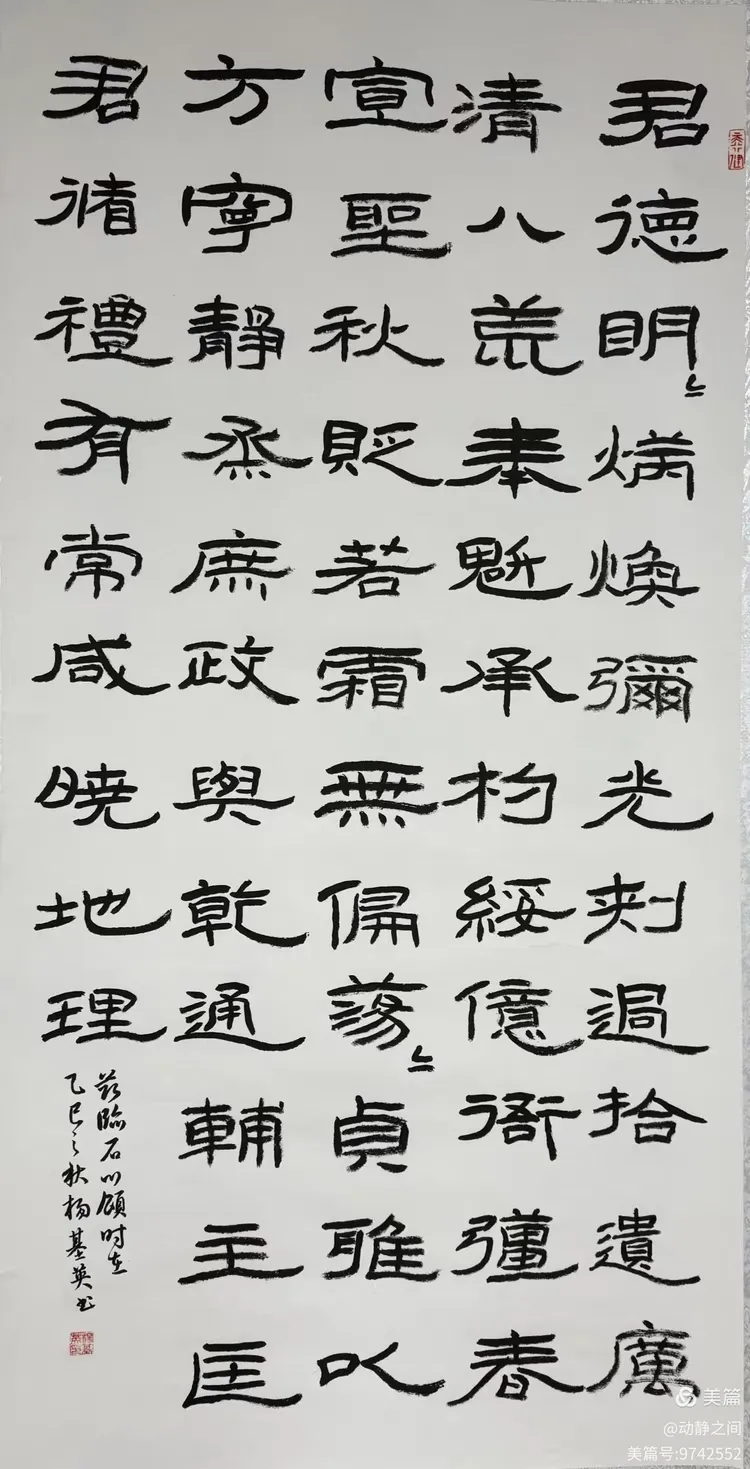 君德明〻炳煥彌光刺過拾遺厲
清八荒奉魁承杓綏億衙彊春
宣聖秋貶若霜無偏蕩〻貞雅以
方寧靜烝庶政與乾通輔主匡
君循禮有常咸曉地理
节临石门颂时在
乙巳之秋杨基英书
美篇
@动静之间
美篇号:9742552